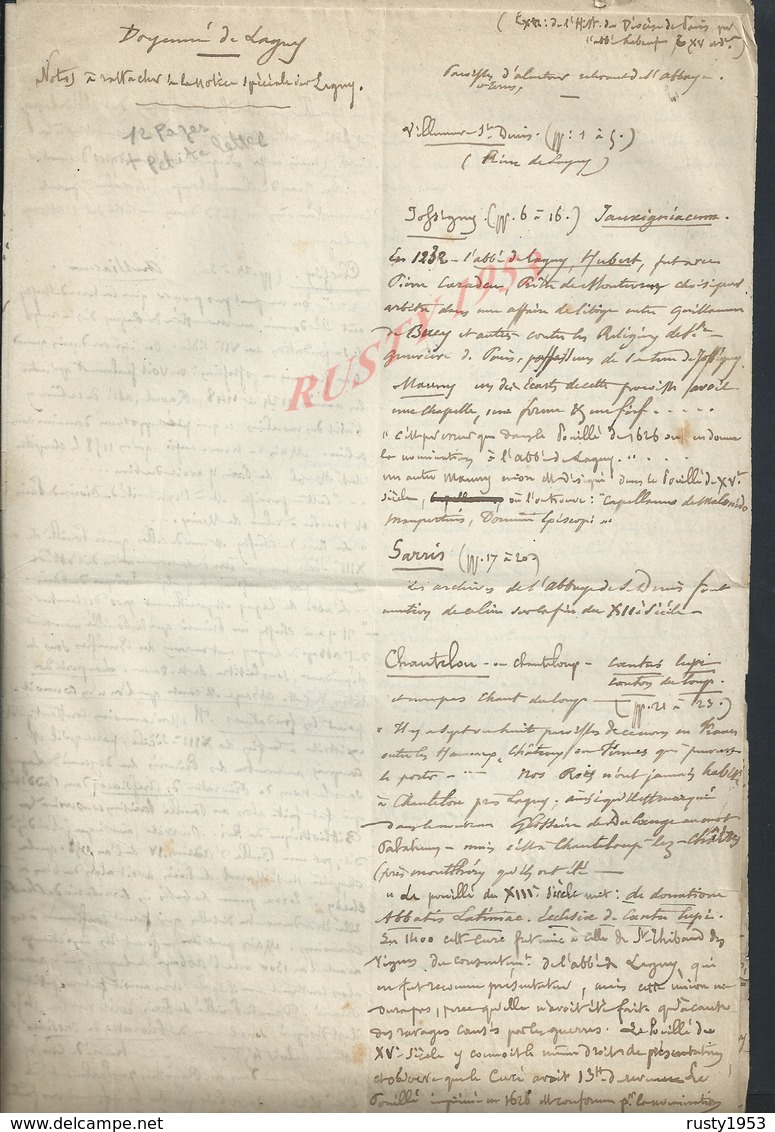 Doyenné de Lagny
Notes à rattacher à la Notice spéciale sur Lagny.
12 pages
+ petite lettre
(Ext: de l'Hist. du Diocèse de Paris par
l'abbé Lebeuf T XV
Paroisses d'alentour relevant de l'abbaye.
Villeneuve St Denis. (pp: 1 à 5.)
(Rive de Lagny)
Jossigny (pp. 6 à 16.) Jauxigniacum.
En 1232 - l'abbé de Lagny, Hubert, fut avec
Pierre
arbitre dans une affaire de litige entre Guillaume
de Bucy et autres contre les Religieux de Ste
Geneviève de Paris, possesseurs de la terre de Jossigny.
RUSTY 1953
Mauny un des écarts de cette paroisse avait
une chapelle, une ferme & un fief .....
dans le Pouillé de 1626 on en donne
la nomination à l'abbé de Lagny. "....
un autre Mauny dans le Pouillé du XVe
siècle, où l'on trouve: "Capellanus de
Domini Episcopi".
Sarris (pp. 17 à 20)
Les archives de l'abbaye de S. Denis font
mention de ce lieu dès le XIIe siècle -
Chantelou - ou chanteloup - cantus lupi
canton du loup.
et non pas chant du loup (pp. 21 à 23.)
" Il y a sept ou huit paroisses de ce nom en France
outre les Hameaux, Châteaux ou Fermes qui peuvent
le porter - ... Nos Rois n'ont jamais habité
à Chantelou près Lagny, ainsi qu'il est marqué
dans le nouveau Glossaire de Du Cange au mot
Palatium - mais c'est à Chanteloup-les-Châtres
(près montlhéry) qu'ils ont été -
" Le pouillé du XIIIe siècle met: de donatione
Abbatis Latiniac. Ecclesia de Cantu lupi.
En 1400 cette cure fut unie à celle de St Thibaud des
Vignes du consentemt. de l'abbé de Lagny, qui
en fut reconnu présentateur, mais cette union ne
dura pas, parce qu'elle n'avait été faite qu'à cause
des ravages causés par les guerres. Le Pouillé du
XVe siècle y connoit le même droit de présentation
et observe que le Curé avait 13tt de revenu. Le
Pouillé imprimé en 1626 est conforme pr. la nomination
rusty1953